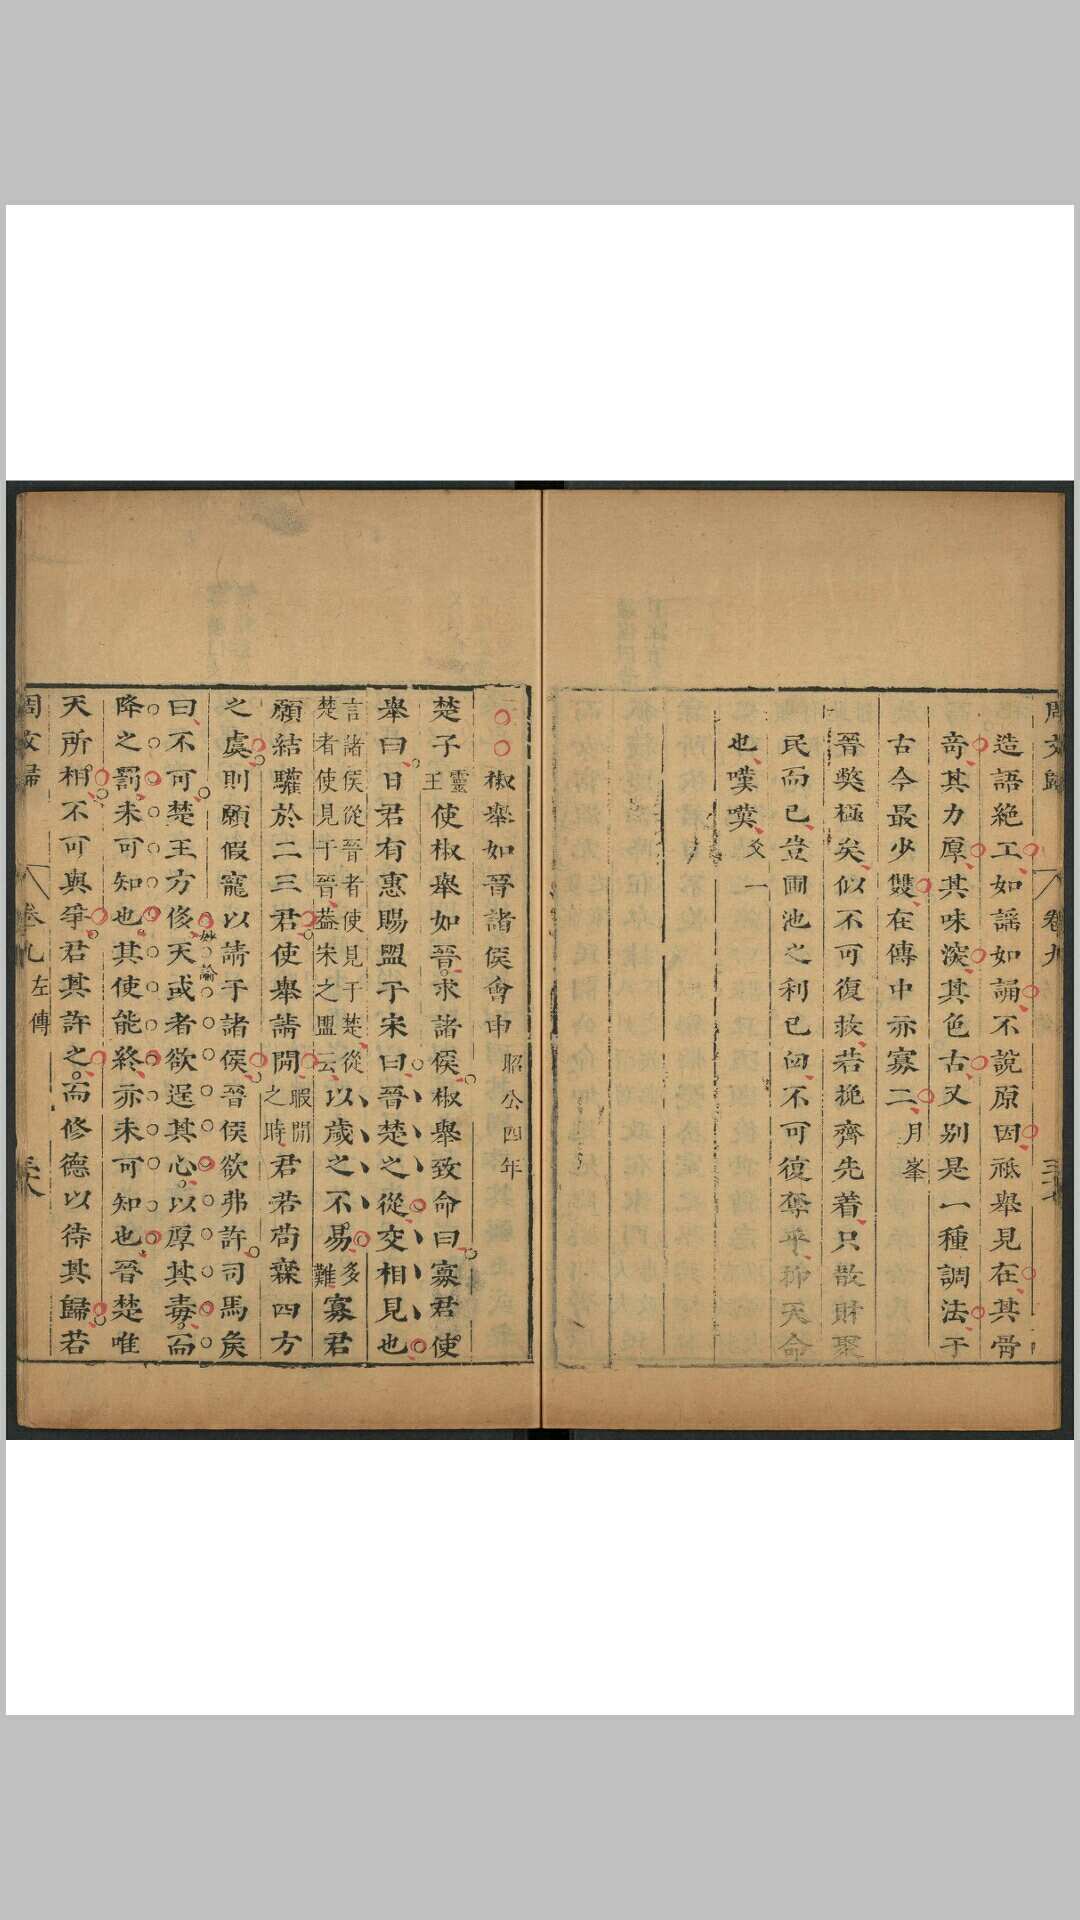 周文歸 卷九
造語絶工如謡如誦不說原因祗舉見在其骨
竒其力厚其味深其色古又别是一種調法于
古今最少雙在傳中亦寡二 月峯
晉獘極矣似不可復救若挽齊先着只散財聚
民而已豈圃池之利已囪不可復奪乎抑天命
也嘆嘆 爻一
椒舉如晉諸侯會申 昭公四年
楚子 靈王 使椒舉如晉求諸侯椒舉致命曰寡君使
舉曰日君有惠賜盟于宋曰晉楚之從交相見也
言諸侯從晉者使見于楚從
楚者使見于晉葢宋之盟云 以歲之不易 多難 寡君
願結驩於二三君使舉請閒 暇閒之時 君若苟無四方
之虞則願假寵以請于諸侯晉侯欲弗許司馬矦
曰不可楚王方侈天或者欲逞其心以厚其毒而
妙論
降之罰未可知也其使能終亦未可知也晉楚唯
天所相不可與爭君其許之而修德以待其歸若
周文歸 卷九 左傳